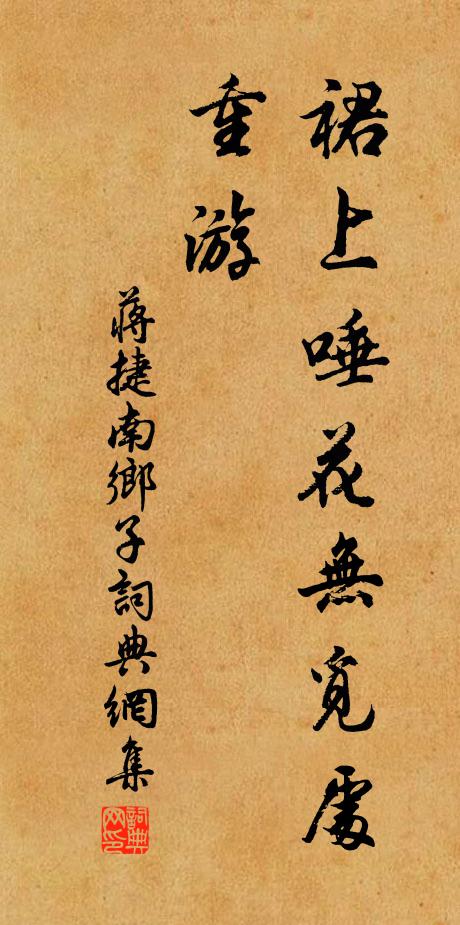 裙上唾花無覓處
重游
蔣捷南鄉子詞典網集
詞典网印